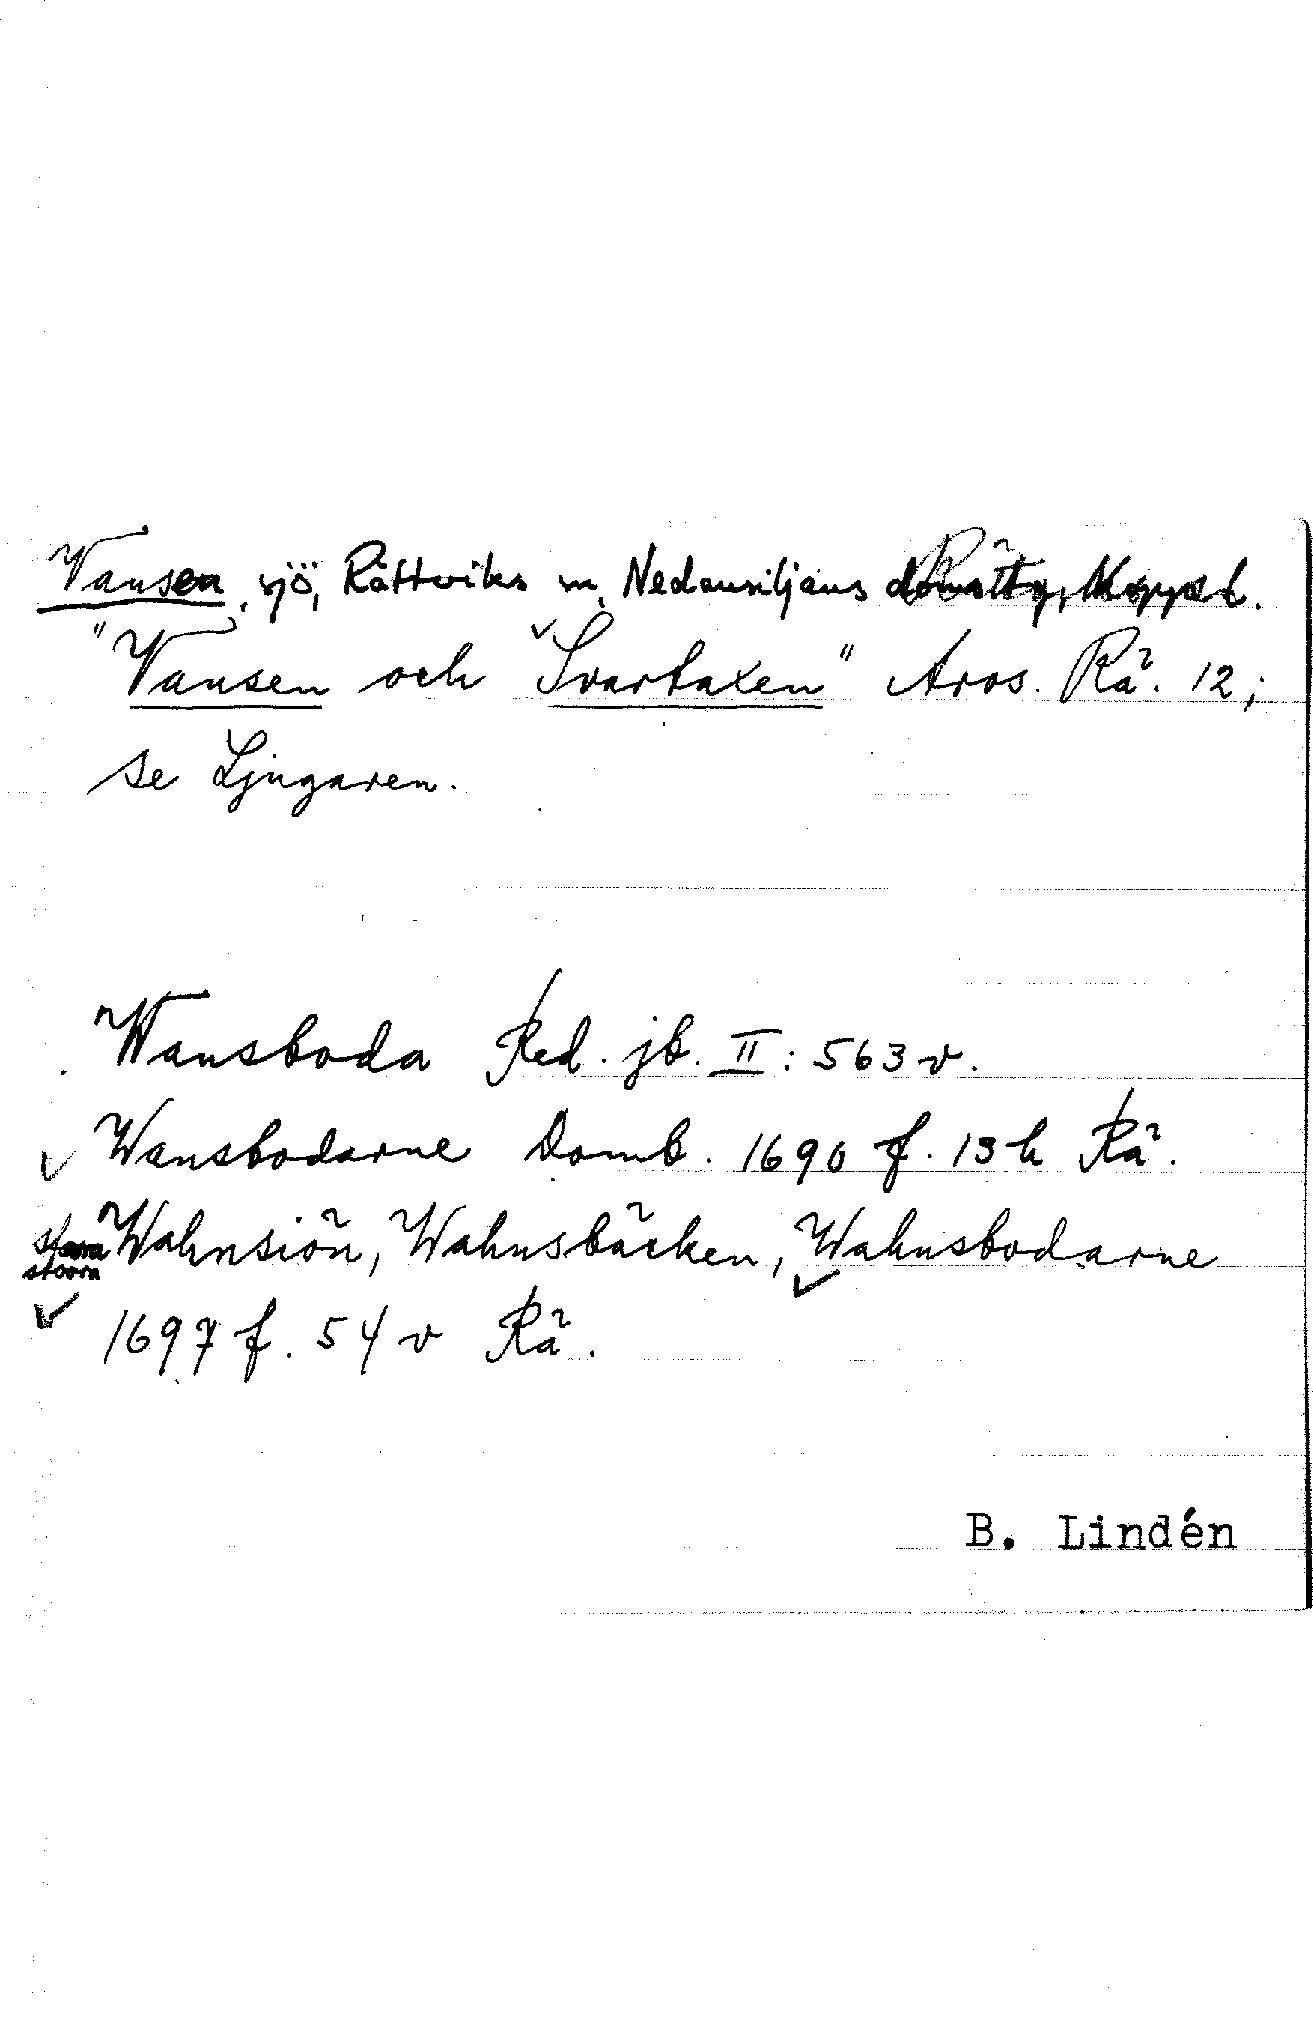 Vansen, sjö, Rättviks sn, Nedansiljans domsaga, Koppal.
"Vansen och Svartaxen" Aros. Rä. 12;
se Ljugaren.
Wansboda Red. jb. II: 563 v.
Wansbodarne Domb. 1690 f. 13 h Rä.
stoora Wahnsiön, Wahnsbäcken, Wahnsbodarne
1697 f. 54 v Rä.
B. Lindén